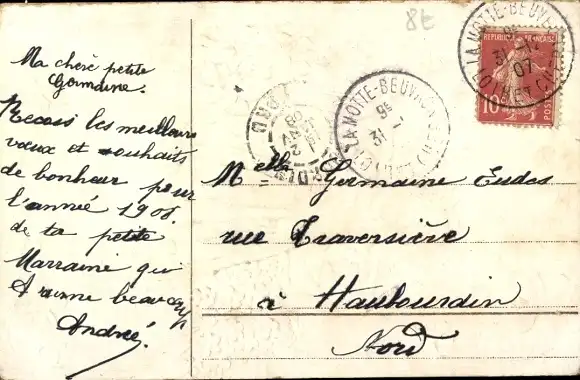 8t
Ma chère petite
Germaine.
Recois les meilleurs
vœux et souhaits
de bonheur pour
l'année 1908.
de ta petite
Marraine qui
t'aime beaucoup
Andrée.
LA MOTTE-BEUVRON
LOIR ET CHER
31 -12
07
REPUBLIQUE FRANÇAISE
10
POSTES
LA MOTTE-BEUVRON
31 -
NORD
08
Melle Germaine Eudes
rue Traversière
à Haubourdin
Nord